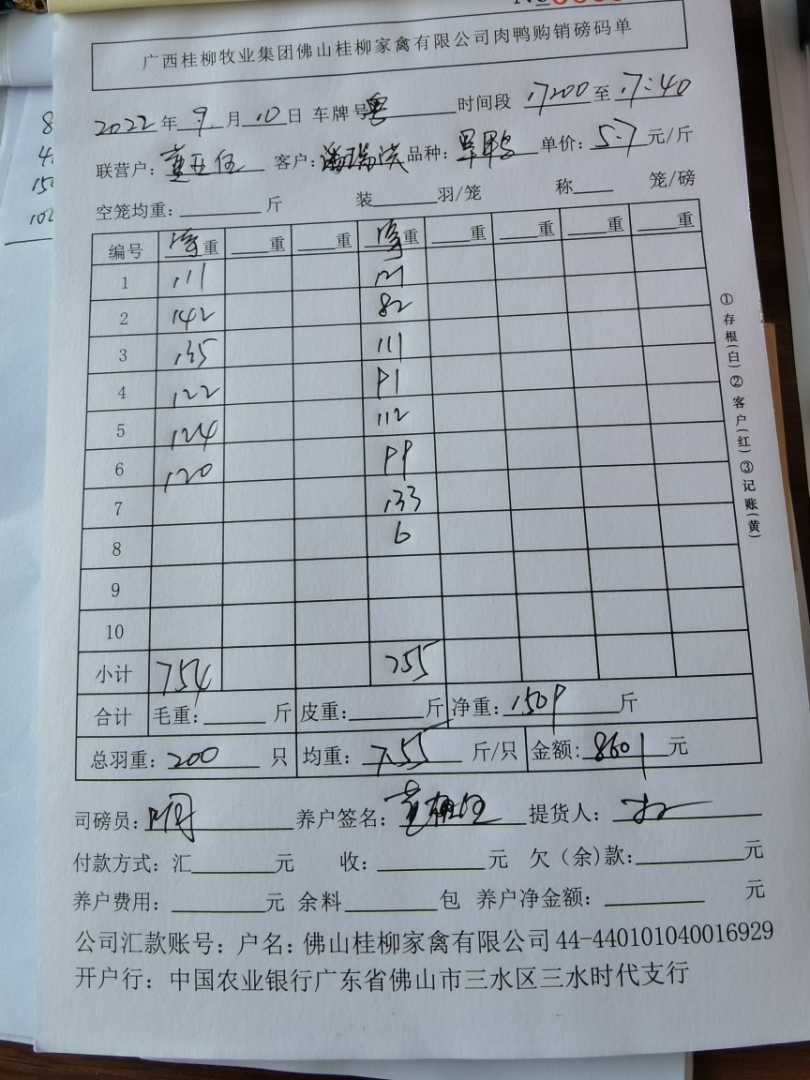 8
4
15
102
No
广西桂柳牧业集团佛山桂柳家禽有限公司肉鸭购销磅码单
2022年9月10日 车牌号粤 时间段 17:00至17:40
联营户: 客户: 品种: 单价:5.7元/斤
空笼均重: 斤 装 羽/笼 称 笼/磅
编号 净重 重 重 净重 重 重 重 重
1 111 121
2 142 82
3 135 111
4 122 91
5 124 112
6 120 99
7 133
8 6
9
10
小计 754 755
合计 毛重: 斤 皮重: 斤 净重:1509斤
总羽重:200只 均重:7.55斤/只 金额:8601元
司磅员: 养户签名: 提货人:
付款方式:汇 元 收: 元 欠(余)款: 元
养户费用: 元 余料 包 养户净金额: 元
公司汇款账号:户名:佛山桂柳家禽有限公司 44-440101040016929
开户行:中国农业银行广东省佛山市三水区三水时代支行
①存根(白)②客户(红)③记账(黄)